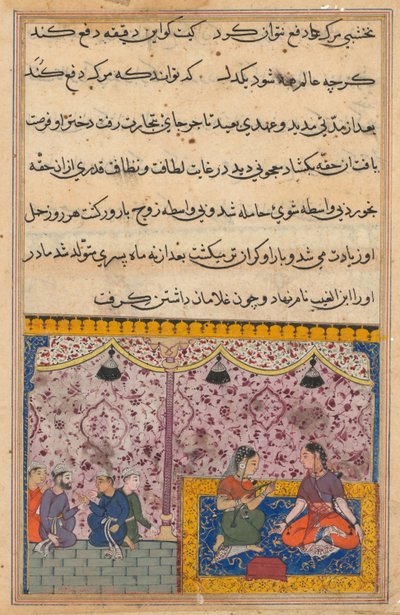 نخشبی مرک دفع نتوان کرد کیست کو این دقیقه دفع کند
کرچه عالم همه شود یکدل که تواند که مرک دفع کند
بعد از مدتی مدید و عهدی بعید تاجر جای تجارت رفت دختر او فرصت
یافت ان حقه بکشاد معجونی دید در غایت لطافت و نظافت قدری از ان حقه
بخورد بی واسطه شوی حامله شد و بی واسطه زوج بارور کشت هر روز حمل
او زیادت می شد و بار او کران تر میکشت بعد از نه ماه پسری متولد شد مادر
او را ابن الغیب نام نهاد و چون غلامان داشتن کرفت